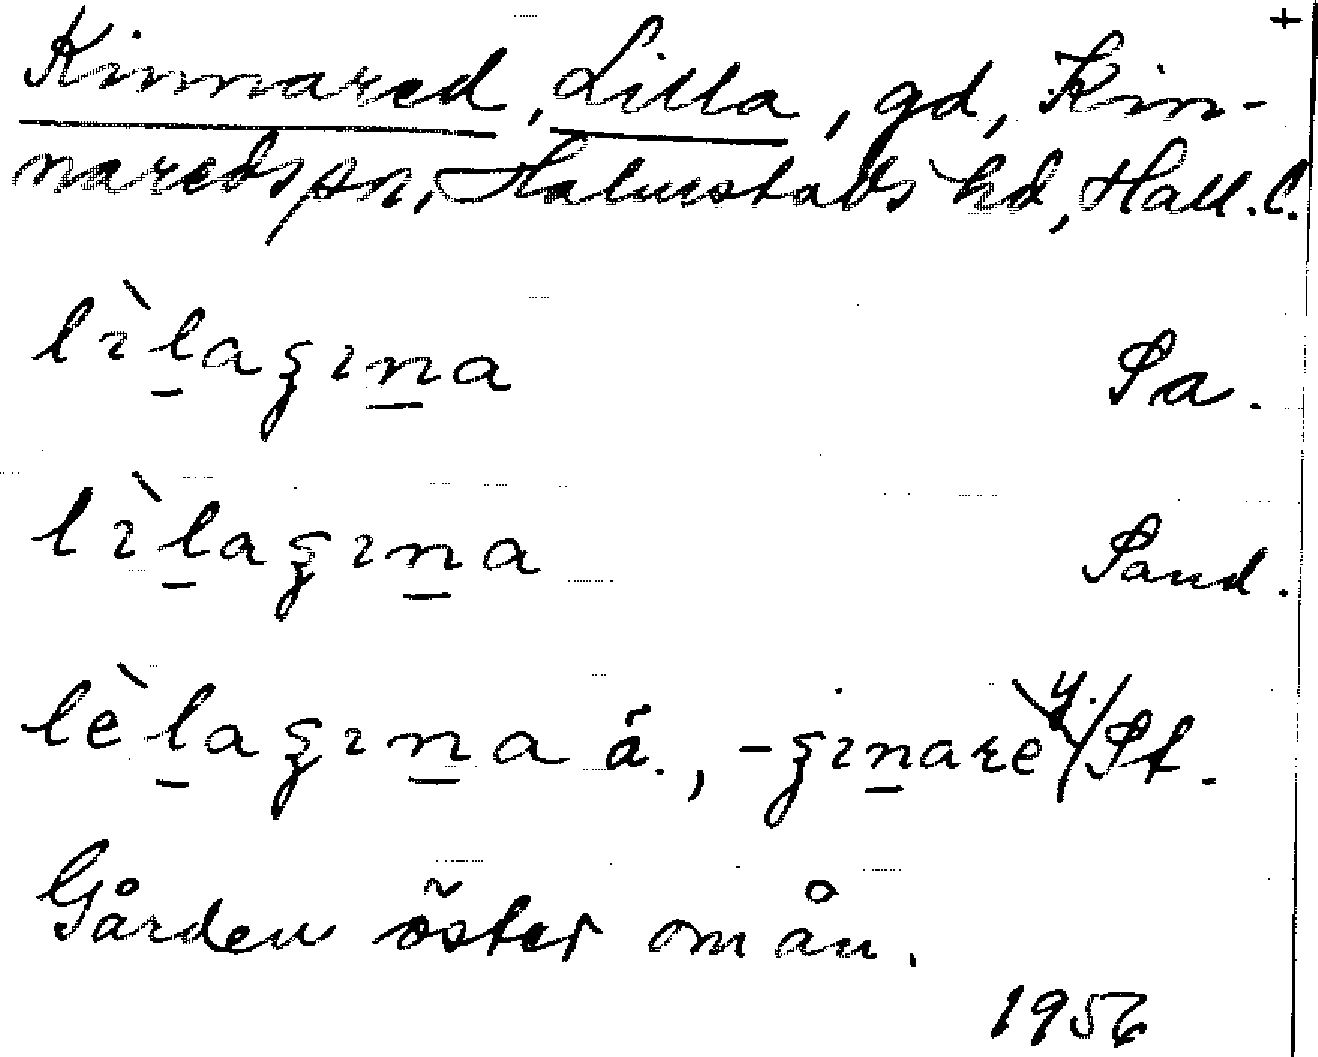 +
Kinnared, Lilla, gd, Kin-
naredspn, Halmstads hd, Hall. l.
lìlaʒına Pa.
lìlaʒına Pand.
lèlaʒına ä., -ʒınarè y./ Pf.
Gården öster om ån.
1956